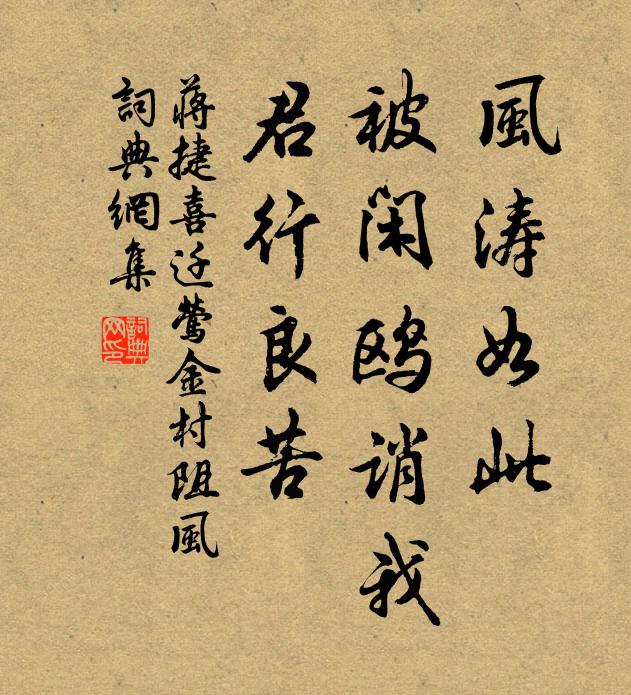 風涛如此
被閑鷗誚我
君行良苦
蔣捷喜迁鶯金村阻風
詞典網集
詞典网印